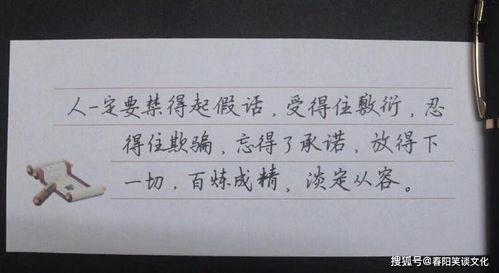 人一定要禁得起假话，受得住敷衍，忍
得住欺骗，忘得了承诺，放得下
一切，百炼成精，淡定从容。
搜狐号@春阳笑谈文化